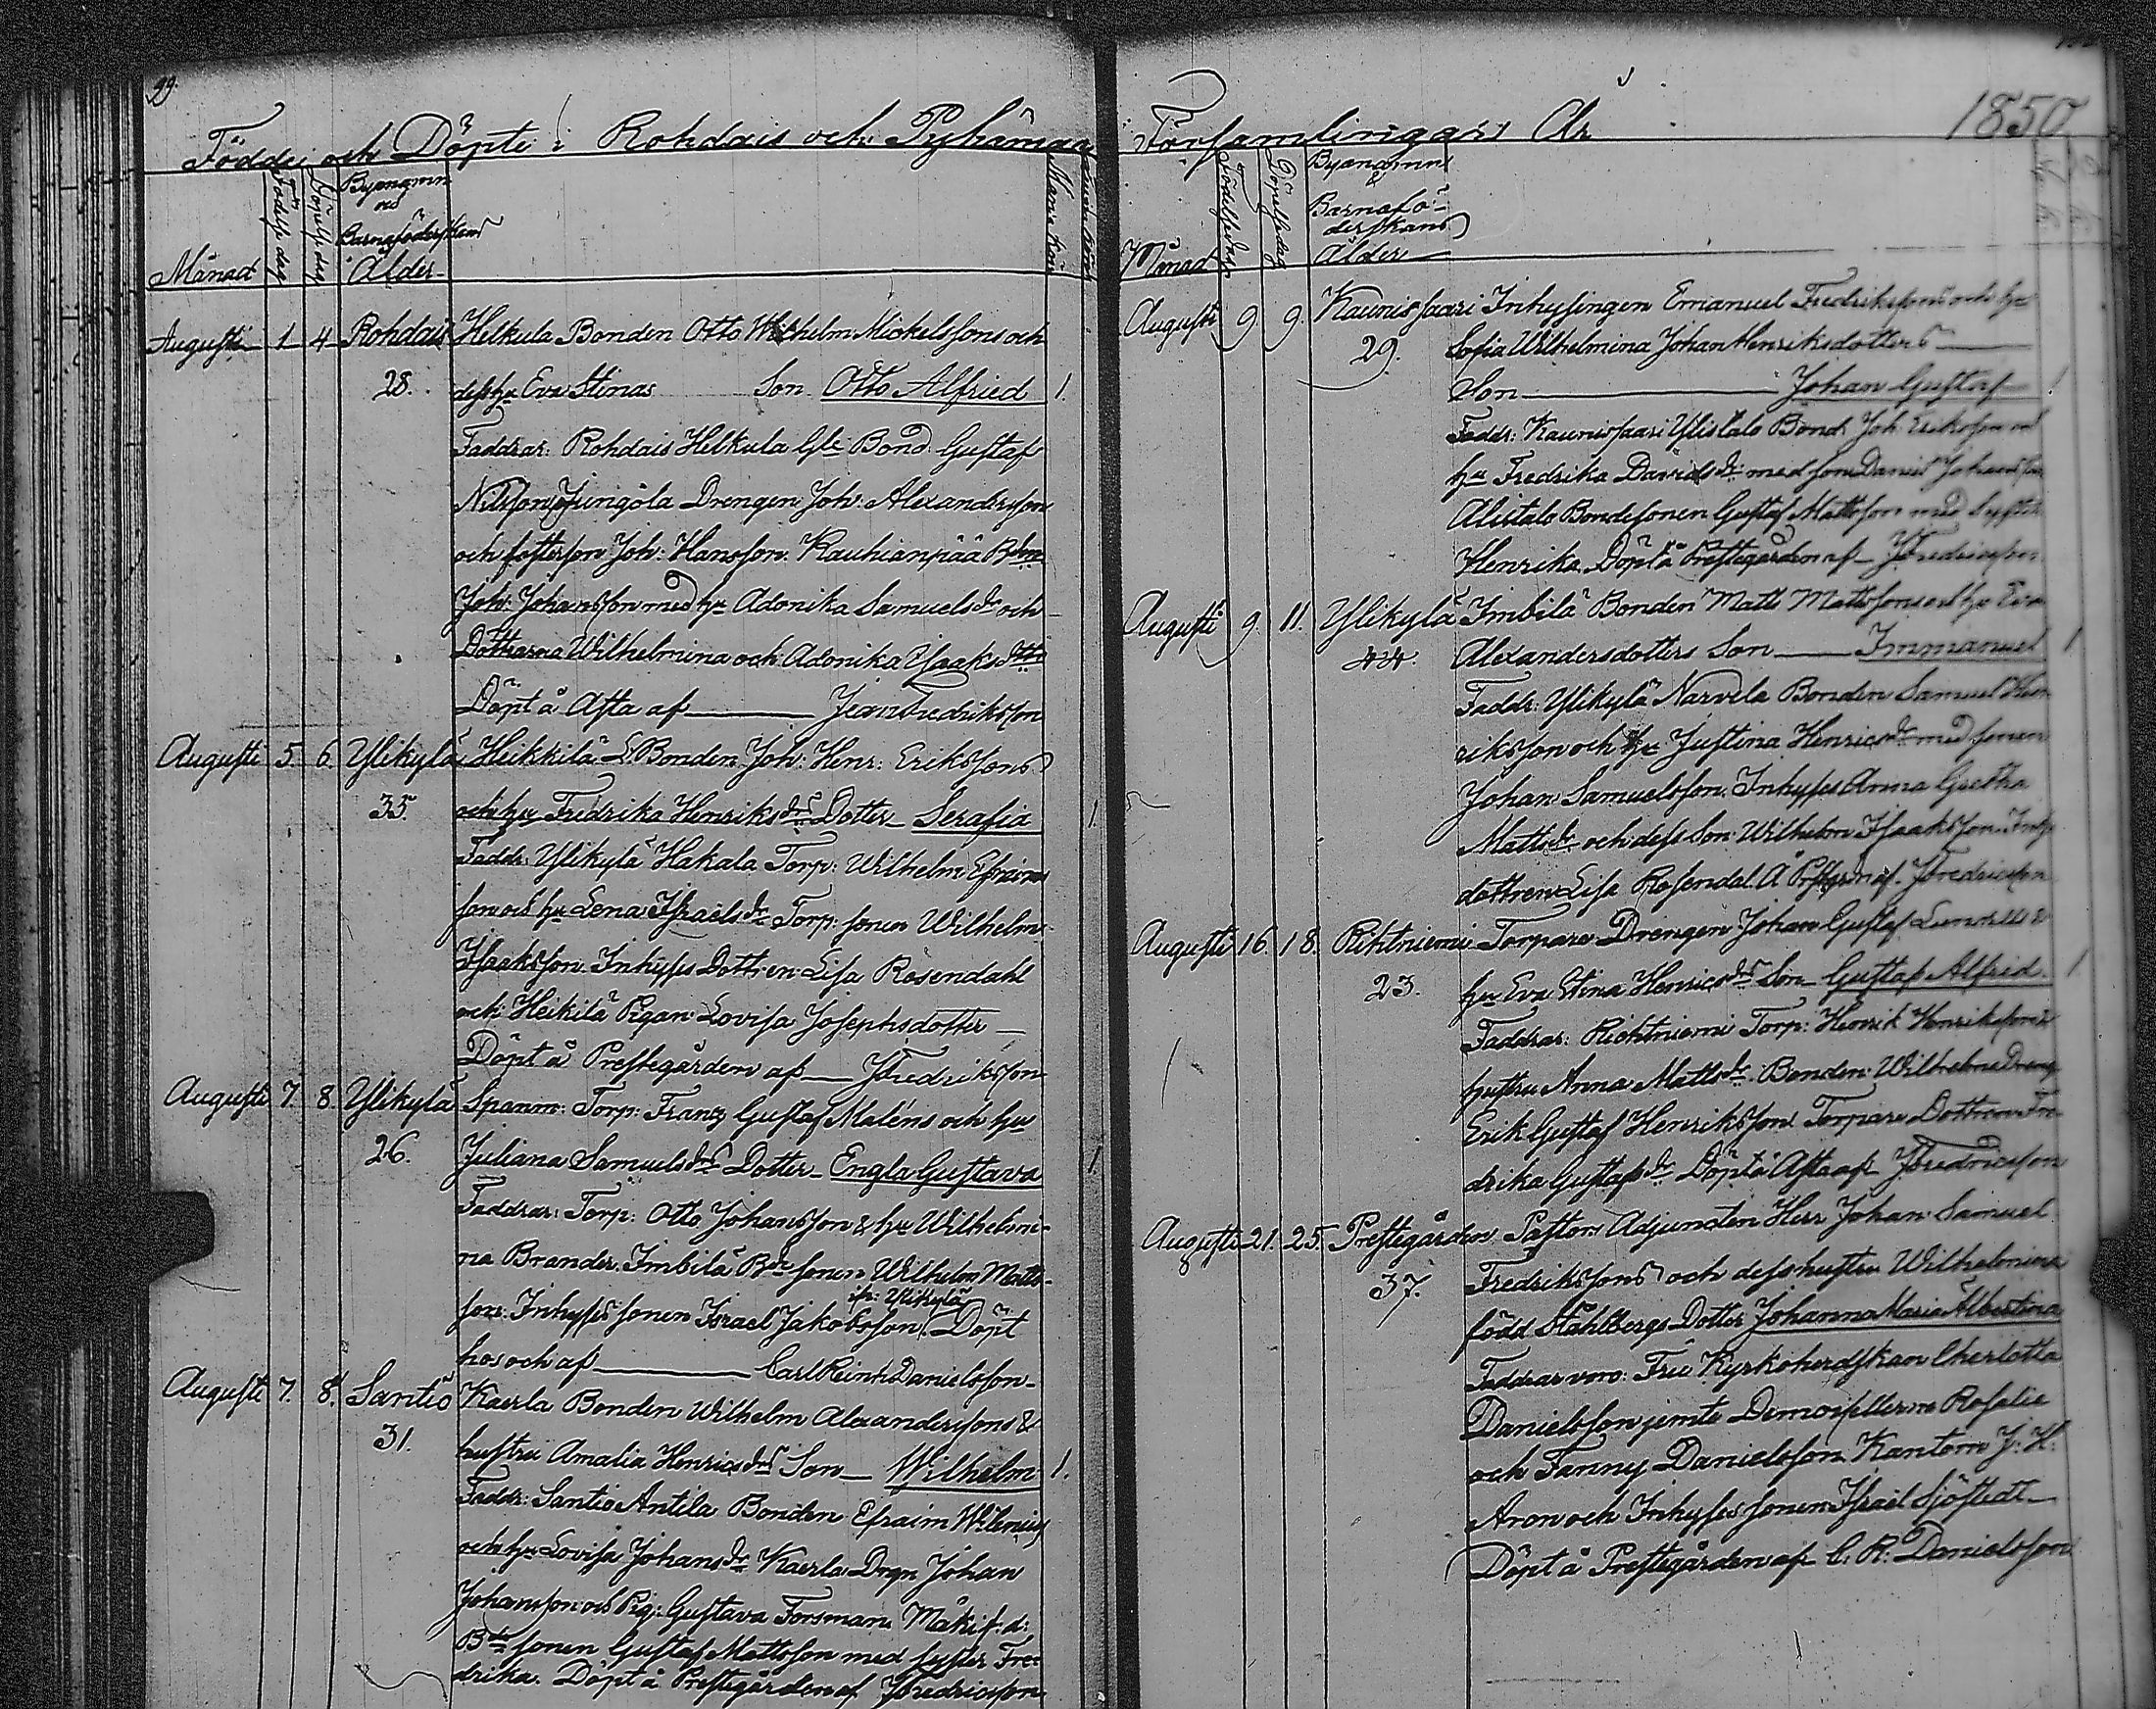 99.
Födde och Döpte i Rohdais och Pyhämaa
Månad
Födelse dag
Döpelse dag
Byanamn
och
Barnaföderskans
Ålder
Manne Kön
Qvinne Kön
Augusti 1 4 Rohdais Helkula Bonden Otto Wilhelm Mickelssons och
28. dess hu Eva Stinas Son Otto Alfried 1.
Faddrar: Rohdais Helkula Gle Bond. Gustaf
Nilsson Jungola Drengen Joh: Alexandersson
och fosterson Joh: Hansson. Kauhianpää
Joh: Johansson med hu Adonika Samuelsdr och
Döttrarna Wilhelmina och Adonika Isaaksdottr
Döpt å Asta af Jean Fredriksson
Augusti 5. 6. Ylikylä Heikkilä L. Bonden Joh: Henr: Erikssons
35. och hu Fredrika Henriksdrs Dotter Serafia 1
Faddr: Ylikylä Hakala Torp: Wilhelm Efraims
son och hu Lena Israelsdr Torp: sonen Wilhelm
Isaaksson. Inhyses Dottren Lisa Rosendahl
och Heikilä Pigan Lovisa Josephsdotter
Döpt å Prestegården af JFredriksson
Augusti 7. 8. Ylikylä Spanm: Torp: Franz Gustaf Maléns och hu
26. Juliana Samuelsdrs Dotter Engla Gustava 1
Faddrar: Torp: Otto Johansson & hu Wilhelmi-
na Brander. Imbilä Bdesonen Wilhelm Matts-
fr: Ylikylä
son: Inhyses sonen Israel Jakobsson. Döpt
hos och af Carl Reinh Danielsson
Augusti 7. 8. Santio Kaerla Bonden Wilhelm Alexanderssons &
31. hustru Amalia Henricsdrs Son Wilhelm 1.
Faddr: Santio Antila Bonden Efraim Wilenius
och hu Lovisa Johansdr Kaerla Drgn Johan
Johansson och Pig: Gustava Forsman. Mäki f. d:
Bdesonen Gustaf Mattsson med syster Fre-
drika. Döpt å Prestegården af JFredricsson
Församlingar År 1850
Månad
Födelsedag
Döpelsedag
Byanamn
&
Barnafö-
derskans
Ålder
Augusti 9 9. Kaunissaari Inhysingen Emanuel Fredrikssons och hu
29. Sofia Wilhelmina Johan Henriksdotters
Son Johan Gustaf 1
Faddr: Kaunissaari Ylistalo Bond: Joh: Eriksson och
hu Fredrika Davidsdr med son Daniel Johansson
Alistalo Bondesonen Gustaf Mattsson med Syster
Henrika. Döpt å Prestegården af JFredricsson
Augusti 9. 11. Ylikylä Imbilä Bonden Matts Mattssons och hu Eva
44. Alexandersdotters Son Immanuel 1
Faddr: Ylikylä Narvela Bonden Samuel Hen
riksson och hu Justina Henricsdr med sonen
Johan Samuelsson. Inhyses Anna Gretha
Mattsdr och dess Son Wilhelm Isaaksson. Inhys
dottren Lisa Rosendal. Å Prestgden af JFredricsson
Augusti 16. 18. Rihtniemi Torpare Drengen Johan Gustaf &
23. hu Eva Stina Henricsdrs Son Gustaf Alfrid 1
Faddrar: Richtniemi Torp: Henrik Henriksson &
hustru Anna Mattsdr. Bonden Wilhelms Dreng
Erik Gustaf Henriksson. Torpare Dottren Fre-
drika Gustafsdr Döpt å Asta af JFredricsson
Augusti 21. 25. Prestegården Pastors Adjuncten Herr Johan Samuel
37. Fredrikssons och dess hustru Wilhelmina
född Ståhlbergs Dotter Johanna Maria Albertina
Faddrar voro: Fru Kyrkoherdskan Charlotta
Danielsson jemte Demoisellerna Rosalie
och Fanny Danielsson Kantorn J: H:
Aron och Inhyses sonen Israel Sjöstedt
Döpt å Prestegården af C. R. Danielsson